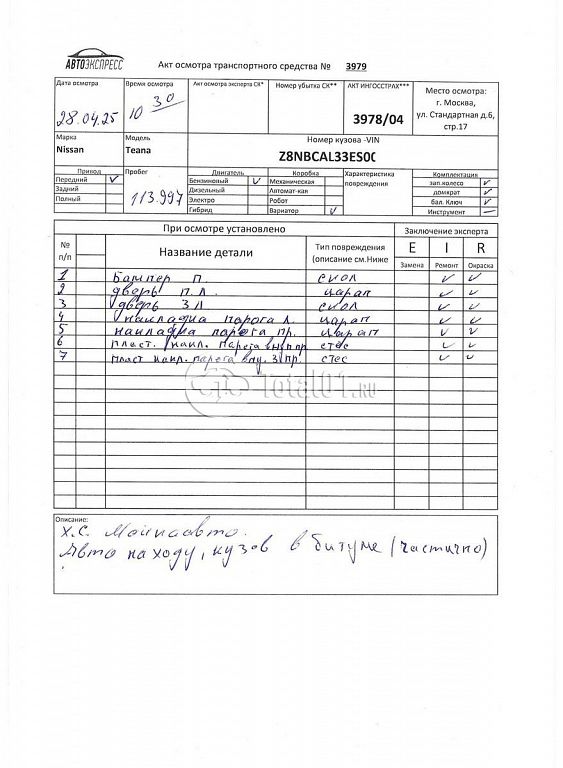 АВТОЭКСПРЕСС
Акт осмотра транспортного средства № 3979
Дата осмотра Время осмотра Акт осмотра эксперта СК* Номер убытка СК** АКТ ИНГОССТРАХ*** Место осмотра:
28.04.25 10 30 3978/04 г. Москва,
ул. Стандартная д.6,
стр.17
Марка Модель Номер кузова -VIN
Nissan Teana Z8NBCAL33ES0
Привод Пробег Двигатель Коробка Характеристика повреждения Комплектация
Передний V 113.997 Бензиновый V Механическая зап.колесо V
Задний Дизельный Автомат-кая домкрат V
Полный Электро Робот бал. Ключ V
Гибрид Вариатор V Инструмент —
При осмотре установлено Заключение эксперта
№ п/п Название детали Тип повреждения (описание см.Ниже E I R
Замена Ремонт Окраска
1 Бампер п. скол V V
2 дверь п.л. царап V V
3 дверь з л скол V V
4 накладка порога л. царап V V
5 накладка порога пр. царап V V
6 пласт. накл. парога пр стес V V
7 пласт накл. парога з пр. стес V V
Total01.RU
Описание:
Х.С. Мойка авто.
Авто на ходу, кузов в битуме (частично)